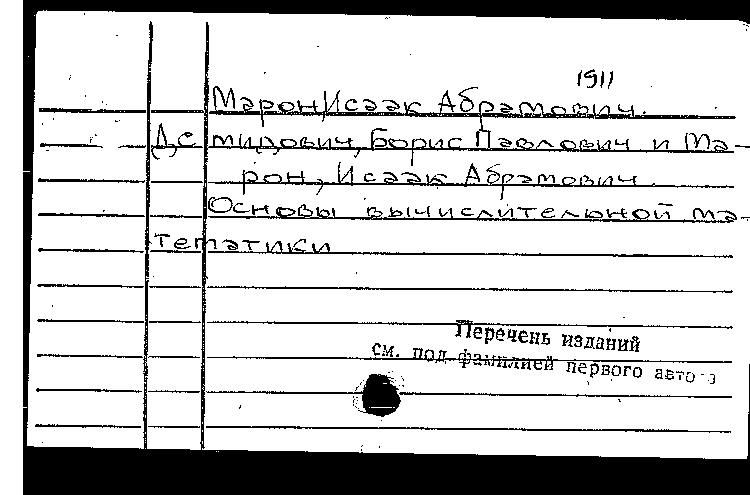 1911
Марон, Исаак Абрамович.
Демидович, Борис Павлович и Ма-
рон, Исаак Абрамович.
Основы вычислительной ма-
тематики
Перечень изданий
см. под фамилией первого автора